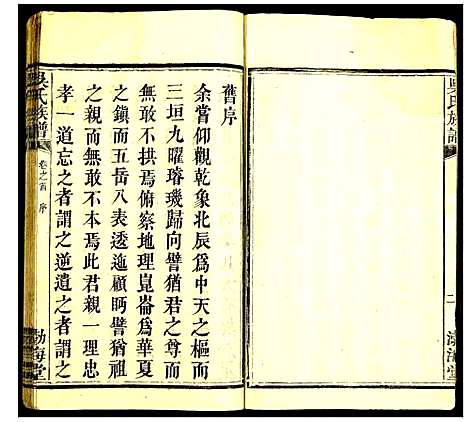 吳氏族譜
二
渤海堂
舊序
余嘗仰觀乾象北辰為中天之樞而
三垣九曜璿璣歸向譬猶君之尊而
無敢不拱焉俯察地理崑崙為華夏
之鎮而五岳八表透迤顧眄譬猶祖
之親而無敢不本焉此君親一理忠
孝一道忘之者謂之逆遺之者謂之
吳氏族譜
卷之首
序
渤海堂